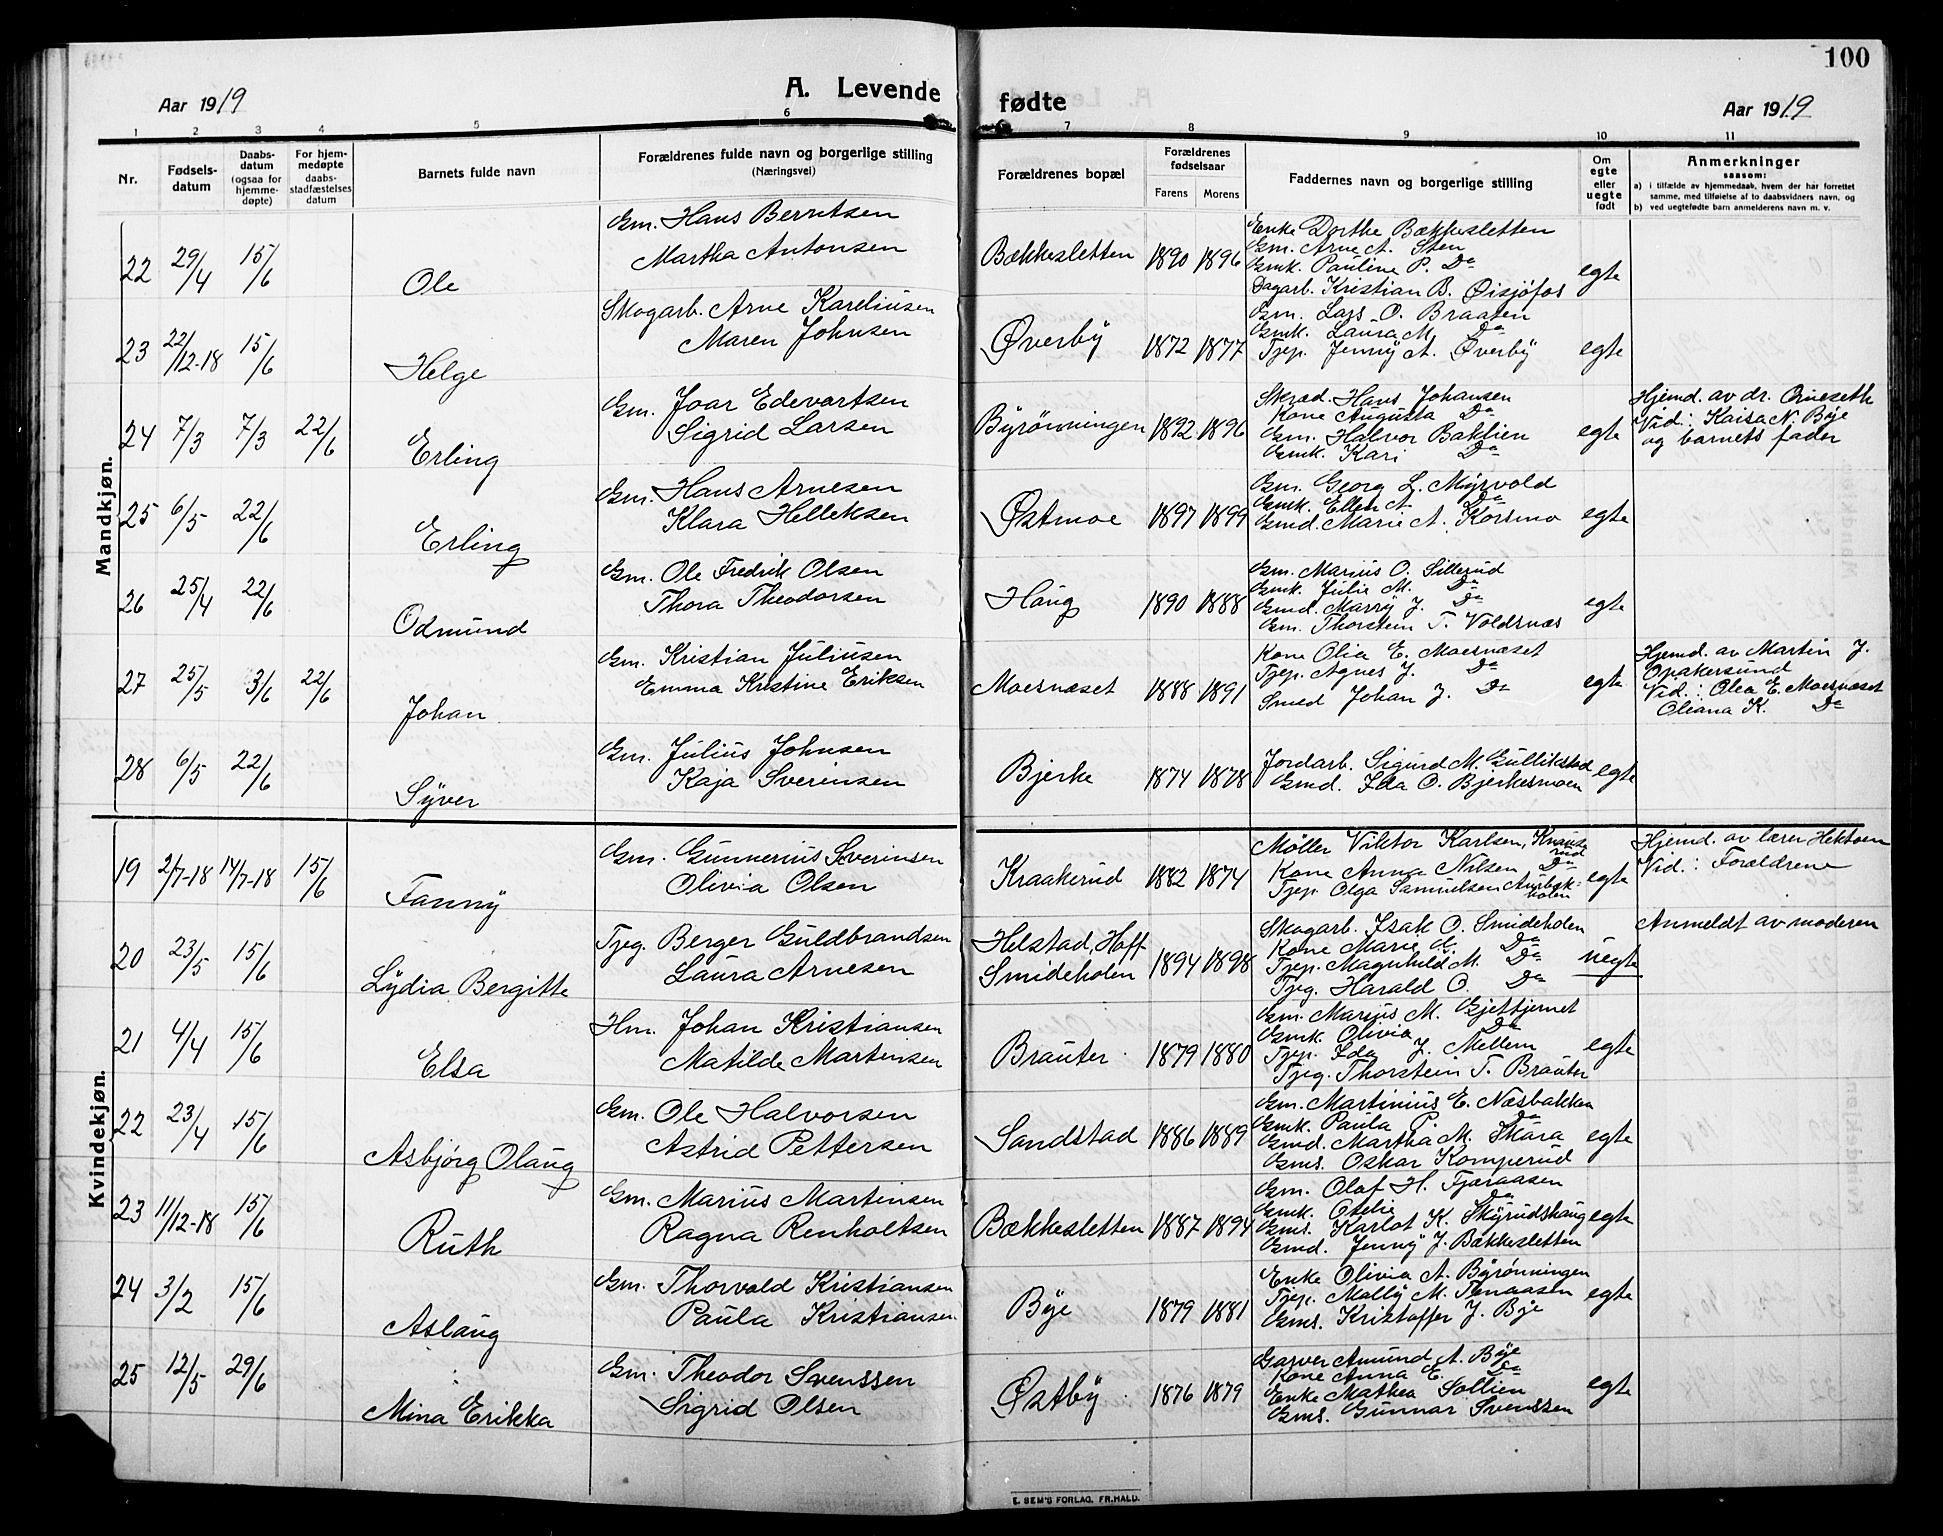 100
Aar 1919
A. Levende fødte
Aar 1919
1 2 3 4 5 6 7 8 9 10 11
Nr.
Fødsels-
datum
Daabs-
datum
(ogsaa for
hjemme-
døpte)
For hjem-
medøpte
daabs-
stadfæstelses
datum
Barnets fulde navn
Forældrenes fulde navn og borgerlige stilling
(Næringsvei)
Forældrenes bopæl
Forældrenes
fødselsaar
Farens Morens
Faddernes navn og borgerlige stilling
Om
egte
eller
uegte
født
Anmerkninger
saasom:
a) i tilfælde av hjemmedaab, hvem der har forrettet
samme, med tilføielse af to daabsvidners navn, og
b) ved uegtefødte barn anmelderens navn m. v.
Mandkjøn.
22 29/4 15/6 Ole
Gm. Hans Berntsen
Martha Antonsen
Bækkesletten 1890 1896
Enke Dorthe Bækkesletten
Gm. Arne A. Sten
Gmk. Pauline P. Do
Dagarb. Kristian B. Øisjøfos
egte
23 22/12-18 15/6 Helge
Skogarb. Arne Kareliusen
Maren Johnsen
Øverby 1872 1877
Gm. Lars O. Braaten
Gmk. Laura M. Do
Tjep. Jenny A. Øverby
egte
24 7/3 7/3 22/6 Erling
Gm. Joar Edevartsen
Sigrid Larsen
Byrønningen 1892 1896
Skræd. Hans Johansen
Kone Augusta Do
Gm. Halvor Baklien
Gmk. Kari Do
egte
Hjemd. av dr.
Vid: Kaisa N. Bye
og barnets fader
25 6/5 22/6 Erling
Gm. Hans Arnesen
Klara Helleksen
Østmoe 1897 1899
Gm. Georg L. Myrvold
Gmk. Ellen A. Do
Gmd. Marie A. Korsmo
egte
26 25/4 22/6 Odmund
Gm. Ole Fredrik Olsen
Thora Theodorsen
Haug 1890 1888
Gm. Marius O. Sillerud
Gmk. Julie M. Do
Gmd. Marry J. Do
Gm. Thorstein T. Voldsnæs
egte
27 25/5 3/6 22/6 Johan
Gm. Kristian Juliusen
Emma Kristine Eriksen
Moernæset 1888 1891
Kone Olia E. Moernæset
Tjep. Agnes J. Do
Smed Johan J. Do
egte
Hjemd. av Martin J.
Opakersund
Vid.: Olea E. Moernæset
Oliana K. Do
28 6/5 22/6 Syver
Gm. Julius Johnsen
Kaja Sverinsen
Bjerke 1874 1878
Jordarb. Sigurd M. Gulliksstad
Gmd. Ida O. Bjerkesmoen
egte
Kvindekjøn.
19 2/7-18 14/7-18 15/6 Fanny
Gm. Gunnerius Sverinsen
Olivia Olsen
Kraakerud 1882 1874
Møller Viktor Karlsen,
Kone Anna Nilsen Do
Tjep. Olga Samuelsen
egte
Hjemd. av lærer Hektoen
Vid.: Forældrene
20 23/5 15/6 Lydia Bergitte
Tjeg. Berger Guldbrandsen
Laura Arnesen
Helstad, Hoff
Smideholen 1894 1898
Skogarb. Isak O. Smideholen
Kone Marie Do
Tjep. Magnhild M. Do
Tjeg. Harald O. Do
uegte
Anmeldt av moderen
21 4/4 15/6 Elsa
Hm. Johan Kristiansen
Matilde Martinsen
Brauter 1879 1880
Gm. Marius M. Gjettjernet
Gmk. Olivia Do
Tjep. Ida J. Mellem
Tjeg. Thorstein T. Brauter
egte
22 23/4 15/6 Asbjørg Olaug
Gm. Ole Halvorsen
Astrid Pettersen
Sandstad 1886 1889
Gm. Martinius E. Næsbakken
Gmk. Paula P. Do
Gmd. Martha M. Skara
Gms. Oskar Komperud
egte
23 11/12-18 15/6 Ruth
Gm. Marius Martinsen
Ragna Renholtsen
Bækkesletten 1887 1894
Gm. Olaf H. Tjæraasen
Gmk. Otelie Do
Gms. Karlot K. Skyrudshaug
Gmd. Jenny J. Bækkesletten
egte
24 3/2 15/6 Aslaug
Gm. Thorvald Kristiansen
Paula Kristiansen
Bye 1879 1881
Enke Olivia A. Byrønningen
Tjep. Mally M.
Gms. Kristoffer J. Bye
egte
25 12/5 29/6 Mina Erikka
Gm. Theodor Svenssen
Sigrid Olsen
Østby 1876 1879
Garver Amund A. Bye
Kone Anna E. Do
Enke Mathea Sollien
Gms. Gunnar Svenssen
egte
E. SEM'S FORLAG, FR.HALD.